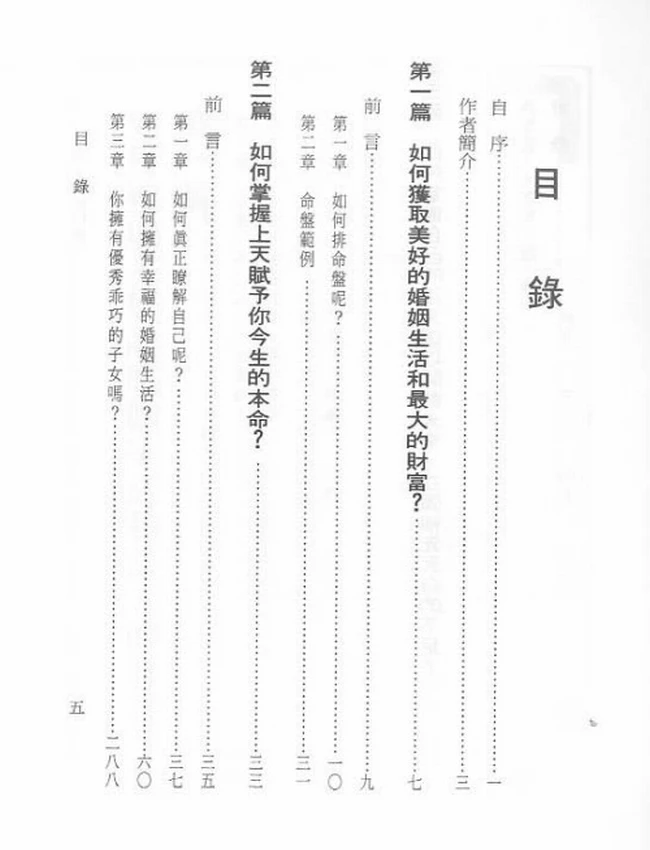 目錄
自序…………一
作者簡介…………三
第一篇 如何獲取美好的婚姻生活和最大的財富?…………七
前言…………九
第一章 如何排命盤呢?…………一〇
第二章 命盤範例…………三一
第二篇 如何掌握上天賦予你今生的本命?…………三三
前言…………三五
第一章 如何眞正瞭解自己呢?…………三七
第二章 如何擁有幸福的婚姻生活?…………六〇
第三章 你擁有優秀乖巧的子女嗎?…………二八八
目錄
五